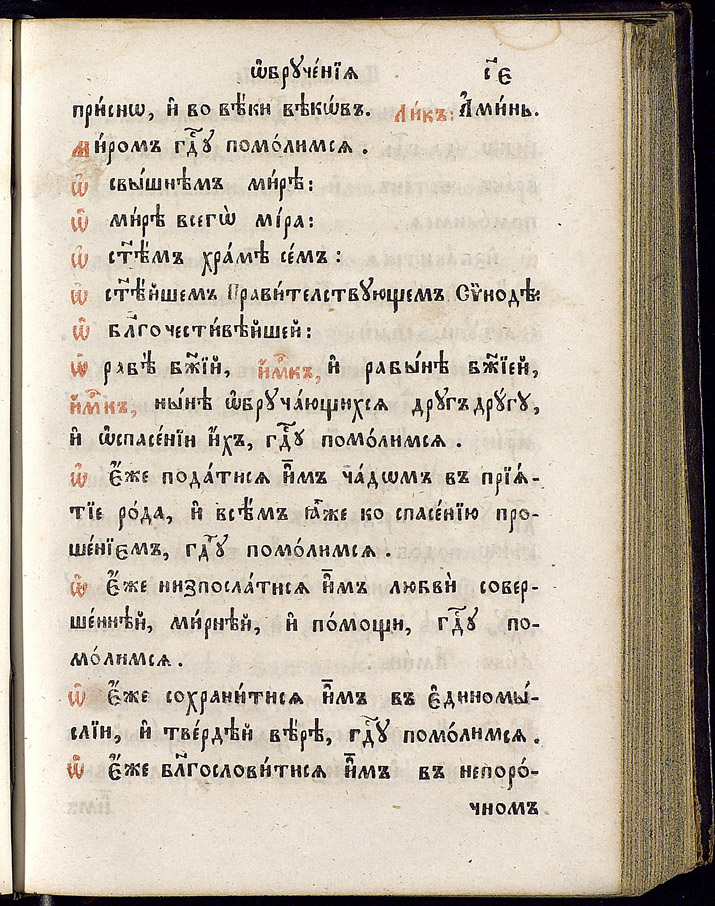 ѡ҆брꙋче́нїѧ с҃є
при́снѡ, и҆ во вѣ́ки вѣкѡ́въ. Ли́къ: А҆ми́нь.
Ми́ромъ гд҇ꙋ помо́лимсѧ.
Ѡ҆ свы́шнѣмъ ми́рѣ:
Ѡ҆ ми́рѣ всегѡ̀ мі́ра:
Ѡ҆ ст҃ѣ́мъ хра́мѣ се́мъ:
Ѡ҆ ст҃ѣ́йшемъ Прави́телствꙋющемъ Сѷно́дѣ:
Ѡ҆ бл҃гочести́вѣйшей:
Ѡ҆ рабѣ̀ бж҃їй, и҆м҃къ, и҆ рабы́нѣ бж҃їей,
и҆м҃къ, ны́нѣ ѡ҆брꙋча́ющихсѧ дрꙋ́гъ дрꙋ́гꙋ,
и҆ ѡ҆спасе́нїи и҆́хъ, гд҇ꙋ помо́лимсѧ.
Ѡ҆ є҆́же пода́тисѧ и҆̀мъ ча́дѡмъ въ прїѧ́-
тїе ро́да, и҆ всѣ̑мъ ꙗ҆̀же ко спасе́нїю про-
ше́нїємъ, гд҇ꙋ помо́лимсѧ.
Ѡ҆ є҆́же низпосла́тисѧ и҆̀мъ любвѝ совер-
ше́ннѣй, ми́рнѣй, и҆ по́мощи, гд҇ꙋ по-
мо́лимсѧ.
Ѡ҆ є҆́же сохрани́тисѧ и҆̀мъ въ є҆диномы́-
слїи, и҆ тве́рдѣй вѣ́рѣ, гд҇ꙋ помо́лимсѧ.
Ѡ҆ є҆́же бл҃гослови́тисѧ и҆̀мъ въ непоро́-
чномъ